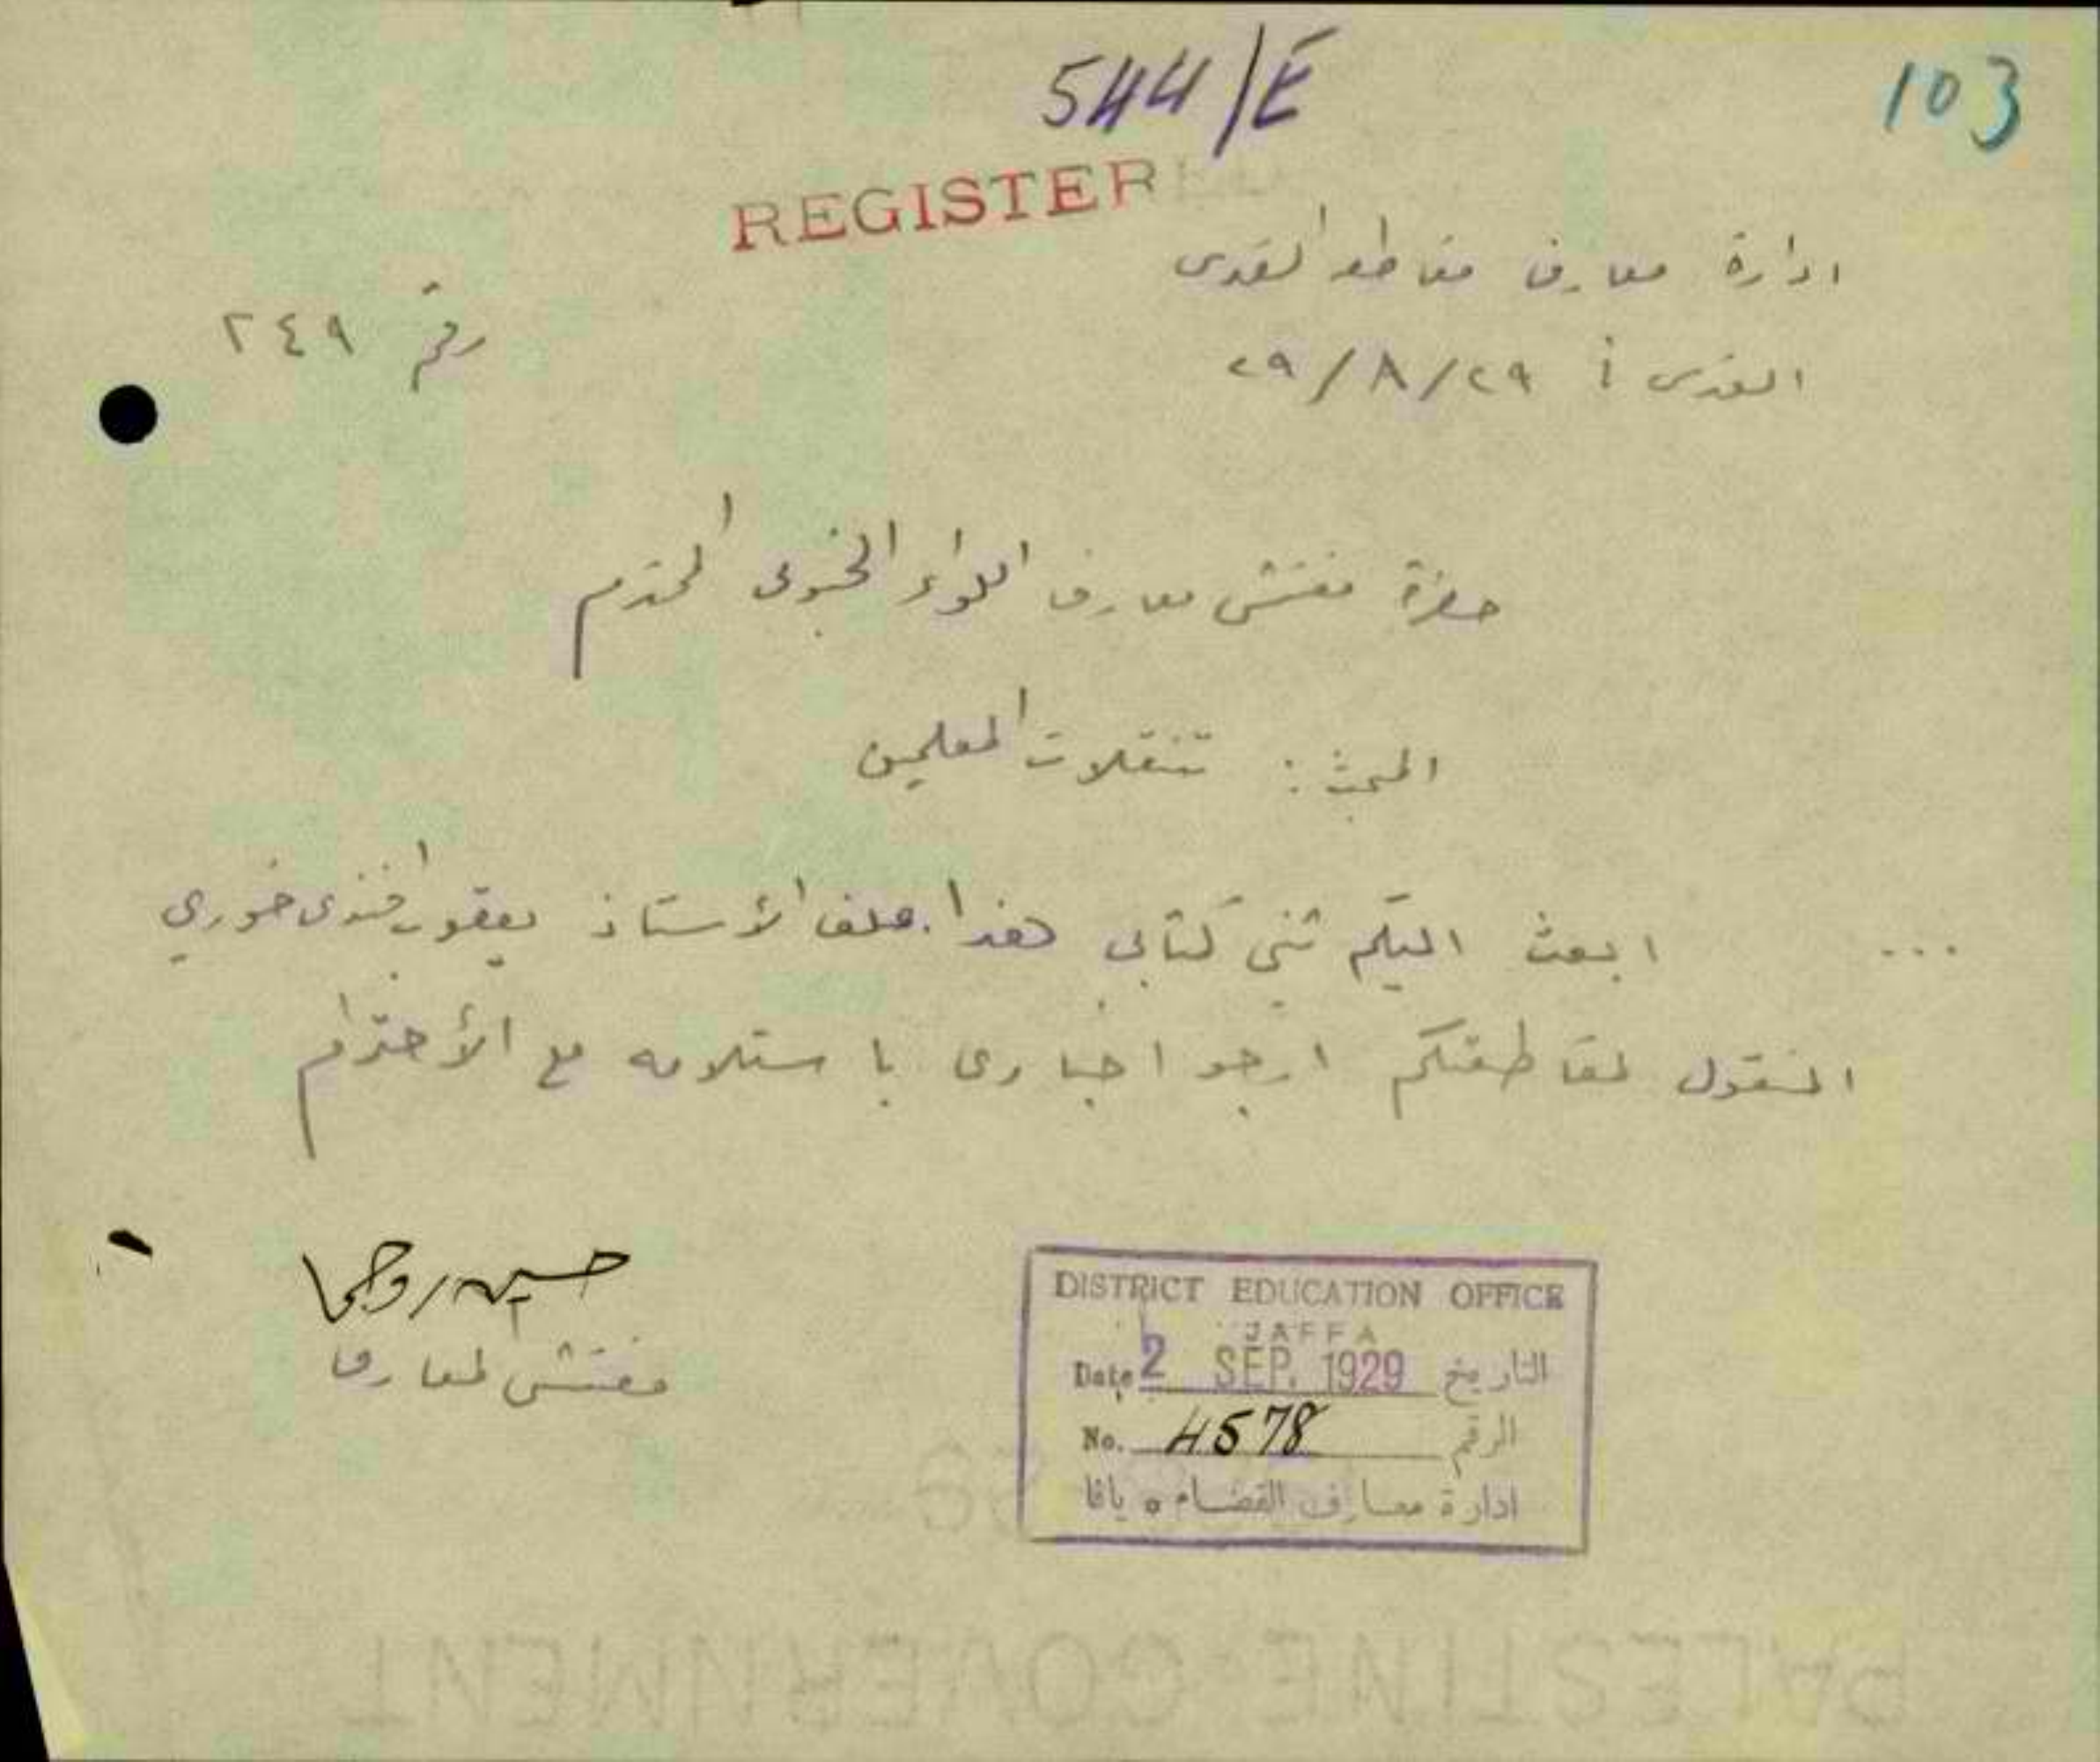 544/E
103
REGISTERED
ادارة معارف مقاطعة القدس
رقم ٢٤٩
القدس في ٢٩/٨/٢٩
حضرة مفتش معارف اللواء الجنوبي المحترم
المبحث: تنقلات المعلمين
... ابعث اليكم ثني كتابي هذا ملف الأستاذ يعقوب افندي خوري
المنقول لمقاطعتكم ارجو اخباري باستلامه مع الأحترام
حسين روحي
مفتش المعارف
DISTRICT EDUCATION OFFICE
JAFFA
Date 2 SEP. 1929 التاريخ
No. 4578 الرقم
ادارة معارف القضاء يافا
PALESTINE GOVERNMENT